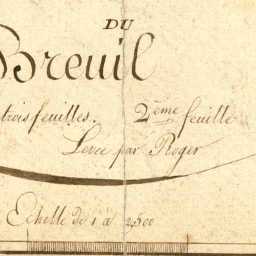 DU
Breuil
trois feuilles. 2ème feuille
Levée par Roger
Echelle de 1 à 2500